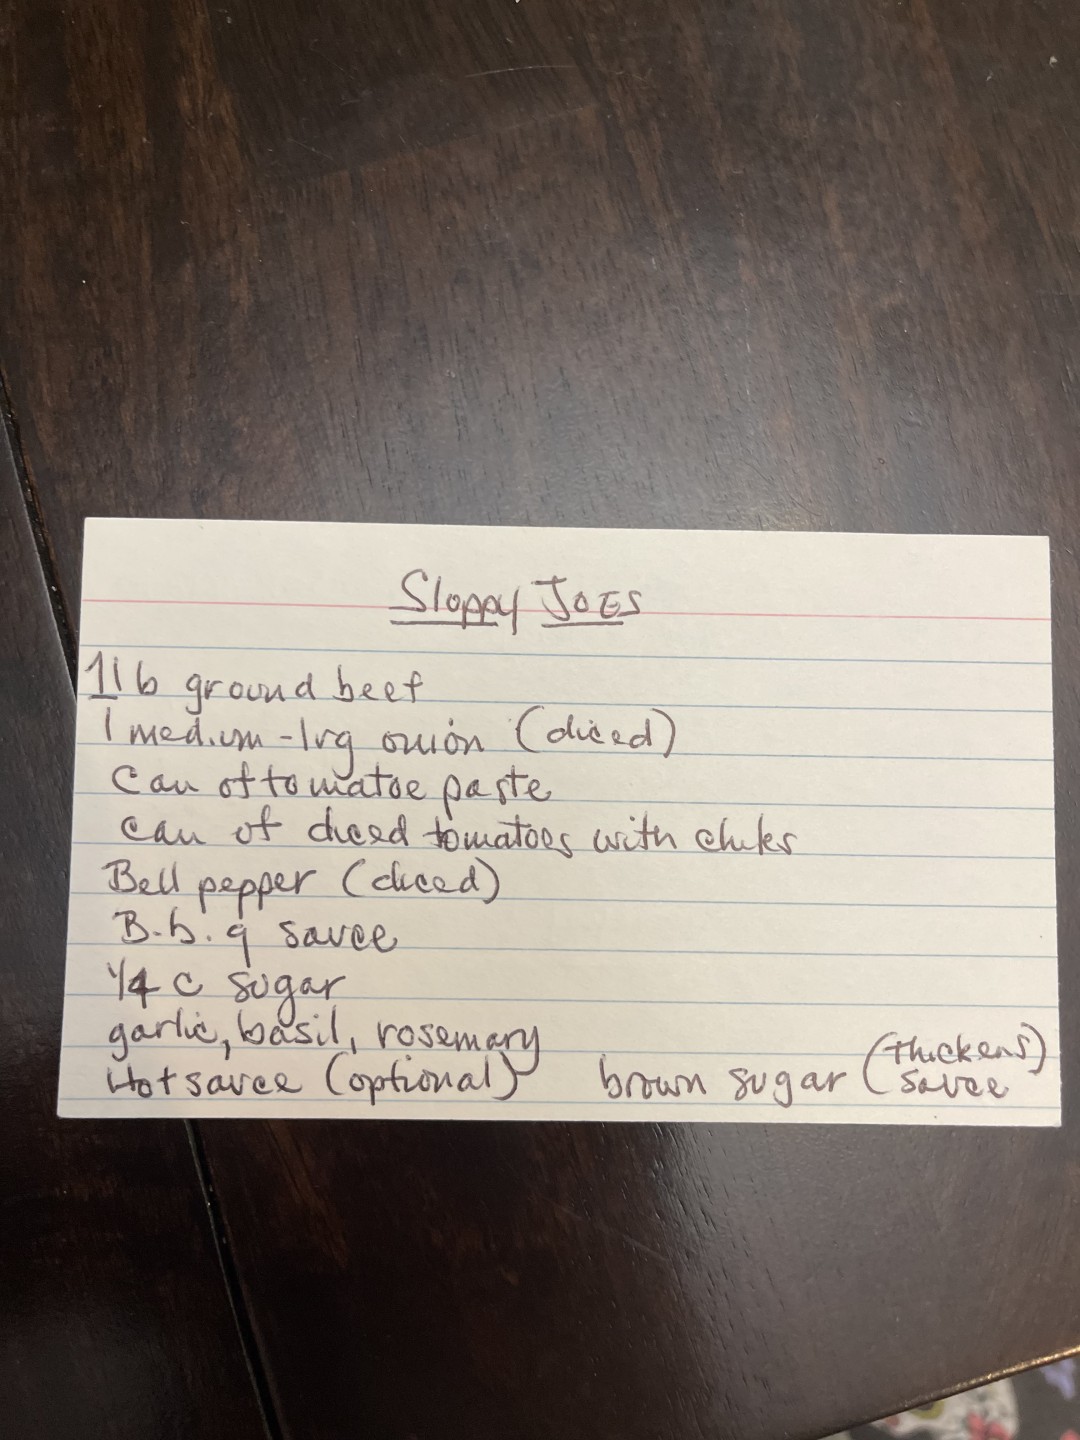 Sloppy JOES
1lb ground beef
1 medium-lrg onion (diced)
Can of tomatoe paste
can of diced tomatoes with
Bell pepper (diced)
B.b.q sauce
1/4 c sugar
garlic, basil, rosemary
Hot sauce (optional) brown sugar (thickens sauce)